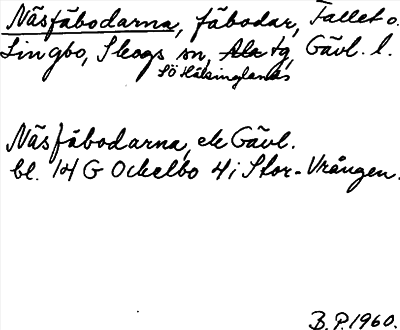 Näsfäbodarna, fäbodar, Tallet o.
Lingbo, Skogs sn, Ala tg, Gävl. l.
SÖ Hälsinglands
Näsfäbodarna, ek Gävl.
bl. 14 G Ockelbo 4 i Stor-Vrången.
B.P. 1960.